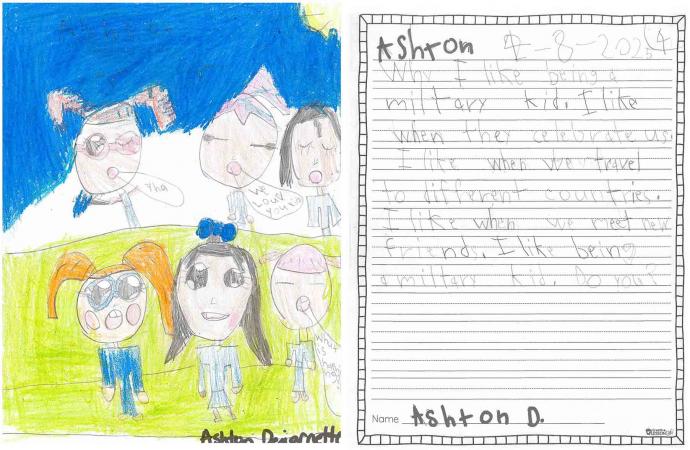 Yha
we
what
is
Ashton Dejarnette
Ashton
-8-2025
Why I like being a
military kid. I like
when they celebrate us.
I like when we travel
to different countries.
I like when we meet new
friends. I like being
a military kid. Do you?
Name Ashton D.